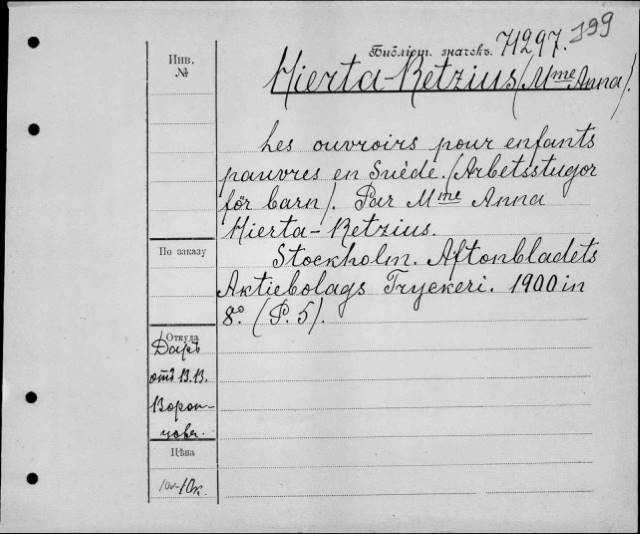 199
Инв.
№
Библіот. значекъ. 71297.
Hierta-Retzius (Mme Anna).
Les ouvroirs pour enfants
pauvres en Suéde. (Arbetsstugor
för barn). Par Mme Anna
Hierta-Retzius.
По заказу
Stockholm. Aftonbladets
Aktiebolags Tryckeri. 1900 in
8º. (P. 5).
Откуда
Даръ
отъ В.В.
Ворон-
цова.
Цѣна
10к.